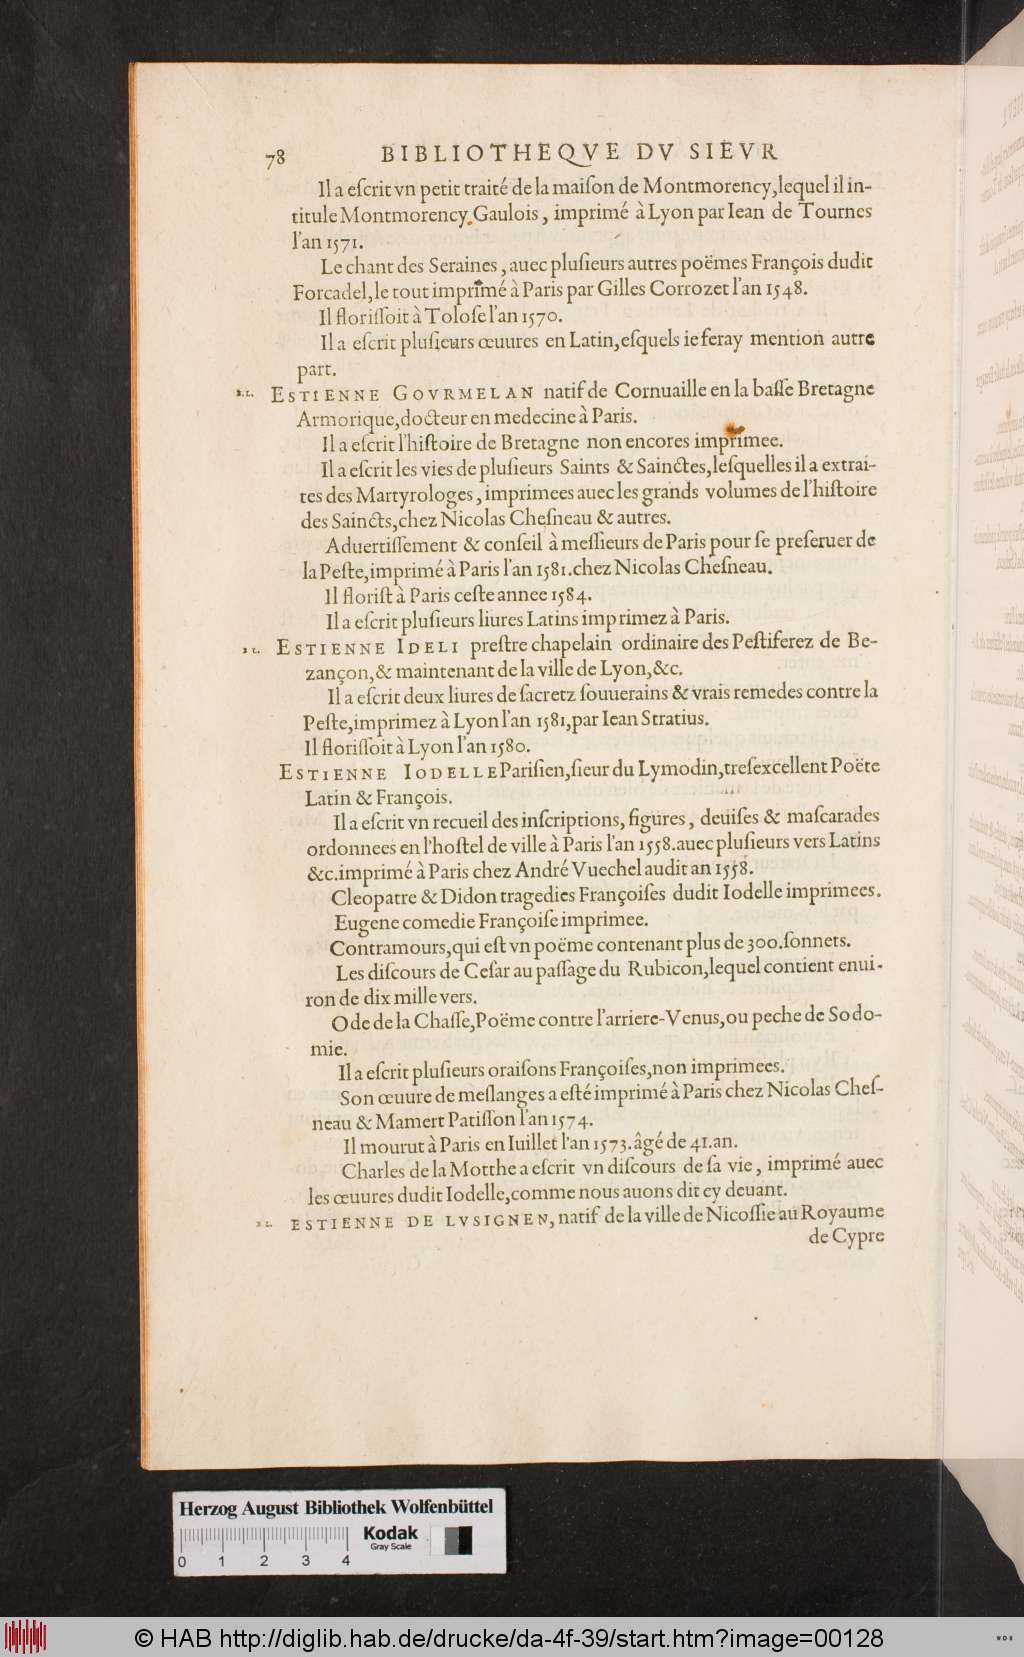 78 BIBLIOTHEQVE DV SIEVR
Il a eſcrit vn petit traité de la maiſon de Montmorency,lequel il in-
titule Montmorency Gaulois, imprimé à Lyon par Iean de Tournes
l'an 1571.
Le chant des Seraines, auec pluſieurs autres poëmes François dudit
Forcadel,le tout imprimé à Paris par Gilles Corrozet l'an 1548.
Il floriſſoit à Toloſe l'an 1570.
Il a eſcrit pluſieurs œuures en Latin,eſquels ie feray mention autre
part.
ESTIENNE GOVRMELAN natif de Cornuaille en la baſſe Bretagne
Armorique,docteur en medecine à Paris.
Il a eſcrit l'hiſtoire de Bretagne non encores imprimee.
Il a eſcrit les vies de pluſieurs Saints & Sainctes,leſquelles il a extrai-
tes des Martyrologes, imprimees auec les grands volumes de l'hiſtoire
des Saincts,chez Nicolas Cheſneau & autres.
Aduertiſſement & conſeil à meſſieurs de Paris pour ſe preſeruer de
la Peſte,imprimé à Paris l'an 1581.chez Nicolas Cheſneau.
Il floriſt à Paris ceſte annee 1584.
Il a eſcrit pluſieurs liures Latins imprimez à Paris.
ESTIENNE IDELI preſtre chapelain ordinaire des Peſtiferez de Be-
zançon,& maintenant de la ville de Lyon,&c.
Il a eſcrit deux liures de ſacretz ſouuerains & vrais remedes contre la
Peſte,imprimez à Lyon l'an 1581,par Iean Stratius.
Il floriſſoit à Lyon l'an 1580.
ESTIENNE IODELLE Pariſien,ſieur du Lymodin,treſexcellent Poëte
Latin & François.
Il a eſcrit vn recueil des inſcriptions, figures, deuiſes & maſcarades
ordonnees en l'hoſtel de ville à Paris l'an 1558.auec pluſieurs vers Latins
&c.imprimé à Paris chez André Vuechel audit an 1558.
Cleopatre & Didon tragedies Françoiſes dudit Iodelle imprimees.
Eugene comedie Françoiſe imprimee.
Contramours,qui eſt vn poëme contenant plus de 300.ſonnets.
Les diſcours de Ceſar au paſſage du Rubicon,lequel contient enui-
ron de dix mille vers.
Ode de la Chaſſe,Poëme contre l'arriere-Venus,ou peche de Sodo-
mie.
Il a eſcrit pluſieurs oraiſons Françoiſes,non imprimees.
Son œuure de meſlanges a eſté imprimé à Paris chez Nicolas Cheſ-
neau & Mamert Patiſſon l'an 1574.
Il mourut à Paris en Iuillet l'an 1573.âgé de 41.an.
Charles de la Motthe a eſcrit vn diſcours de ſa vie, imprimé auec
les œuures dudit Iodelle,comme nous auons dit cy deuant.
ESTIENNE DE LVSIGNEN, natif de la ville de Nicoſſie au Royaume
de Cypre
Herzog August Bibliothek Wolfenbüttel
Kodak
Gray Scale
0 1 2 3 4
© HAB http://diglib.hab.de/drucke/da-4f-39/start.htm?image=00128